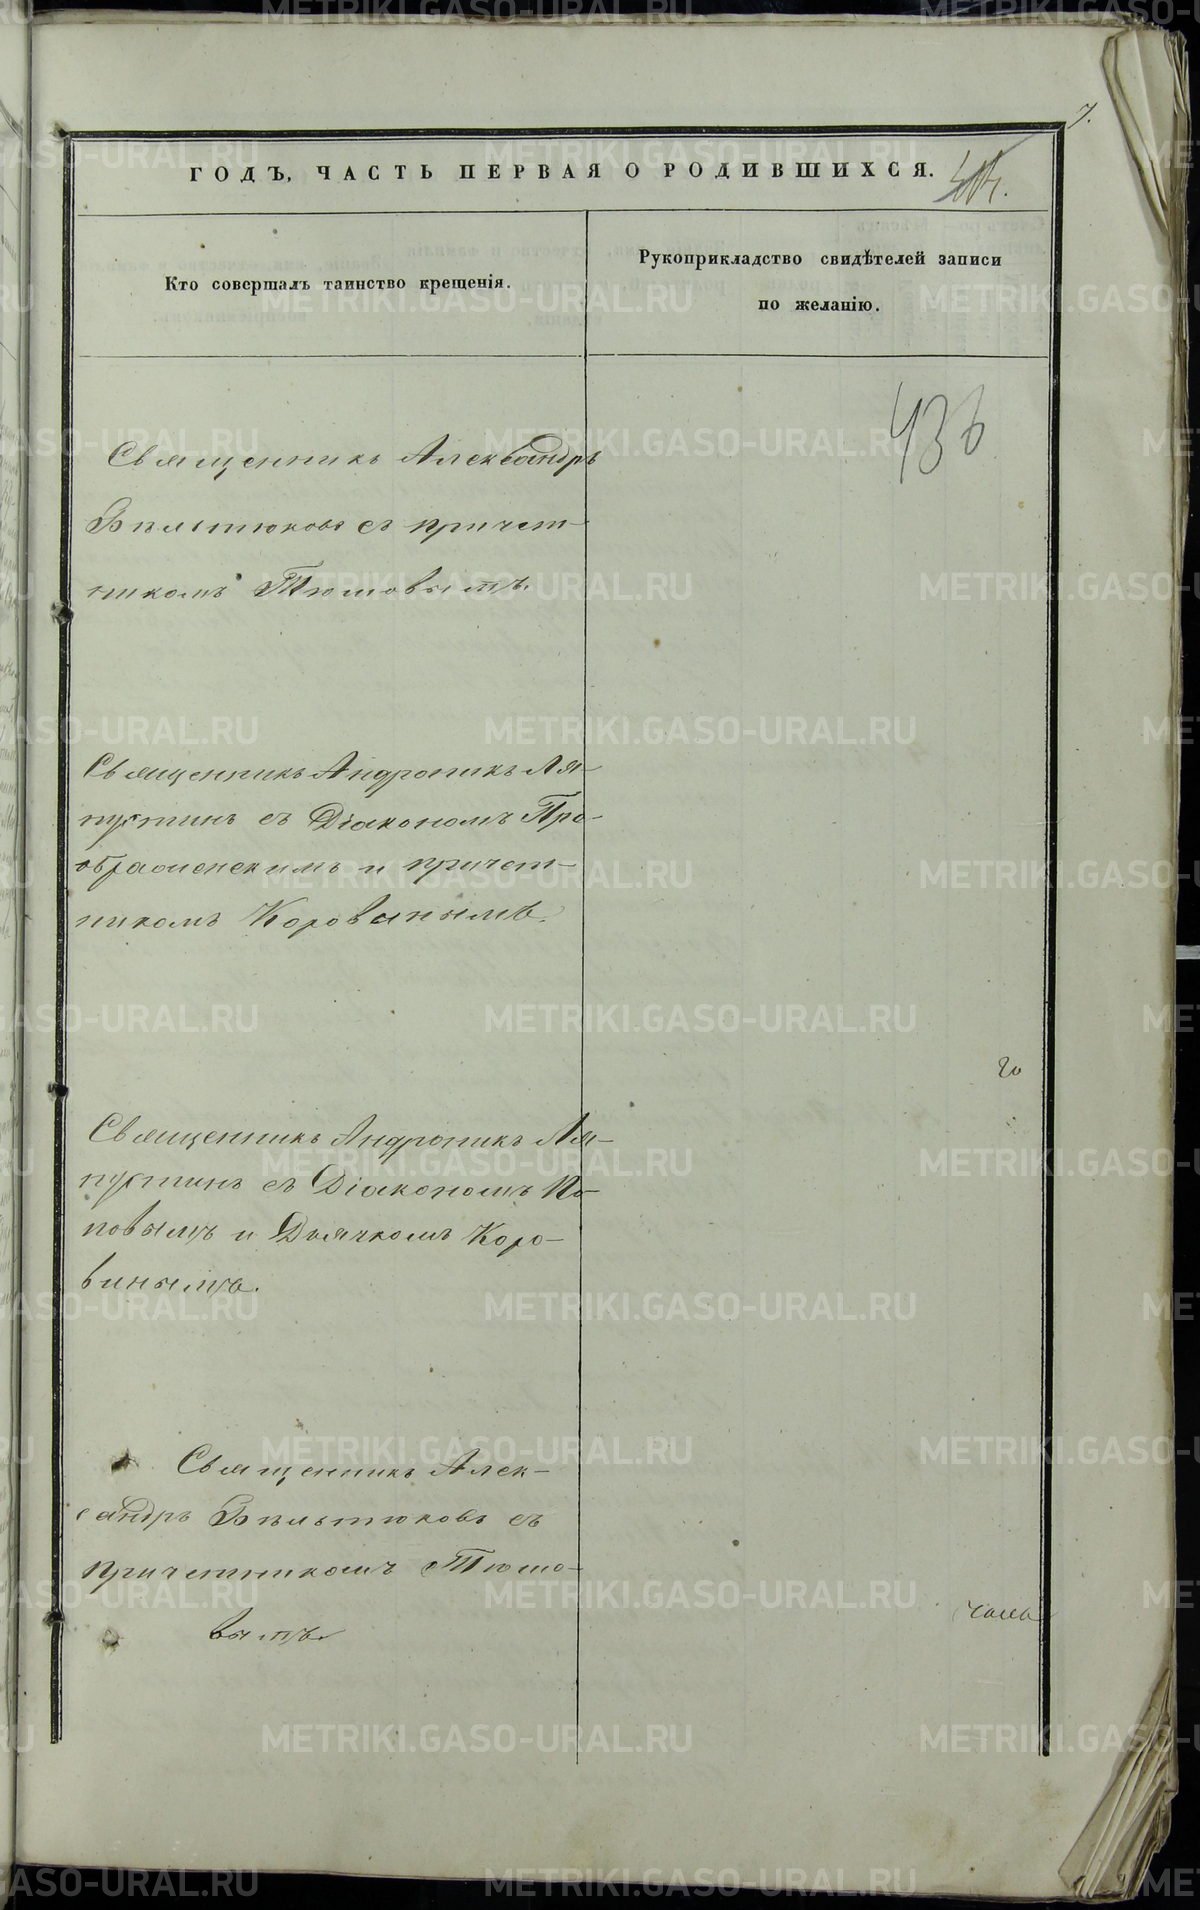 7.
ГОДЪ, ЧАСТЬ ПЕРВАЯ О РОДИВШИХСЯ.
Кто совершалъ таинство крещенія.
Рукоприкладство свидѣтелей записи
по желанію.
436
Священникъ Александръ
Бѣльтюковъ съ причет-
никомъ Тюшовымъ.
Священникъ Андроникъ Ля-
пустинъ съ Діакономъ Пре-
ображенскимъ и причет-
никомъ Коровинымъ.
20
Священникъ Андроникъ Ля-
пустинъ съ Діакономъ По-
повымъ и Дьячкомъ Коро-
винымъ.
Священникъ Алек-
сандръ Бѣльтюковъ съ
причетникомъ Тюшо-
вымъ
METRIKI.GASO-URAL.RU